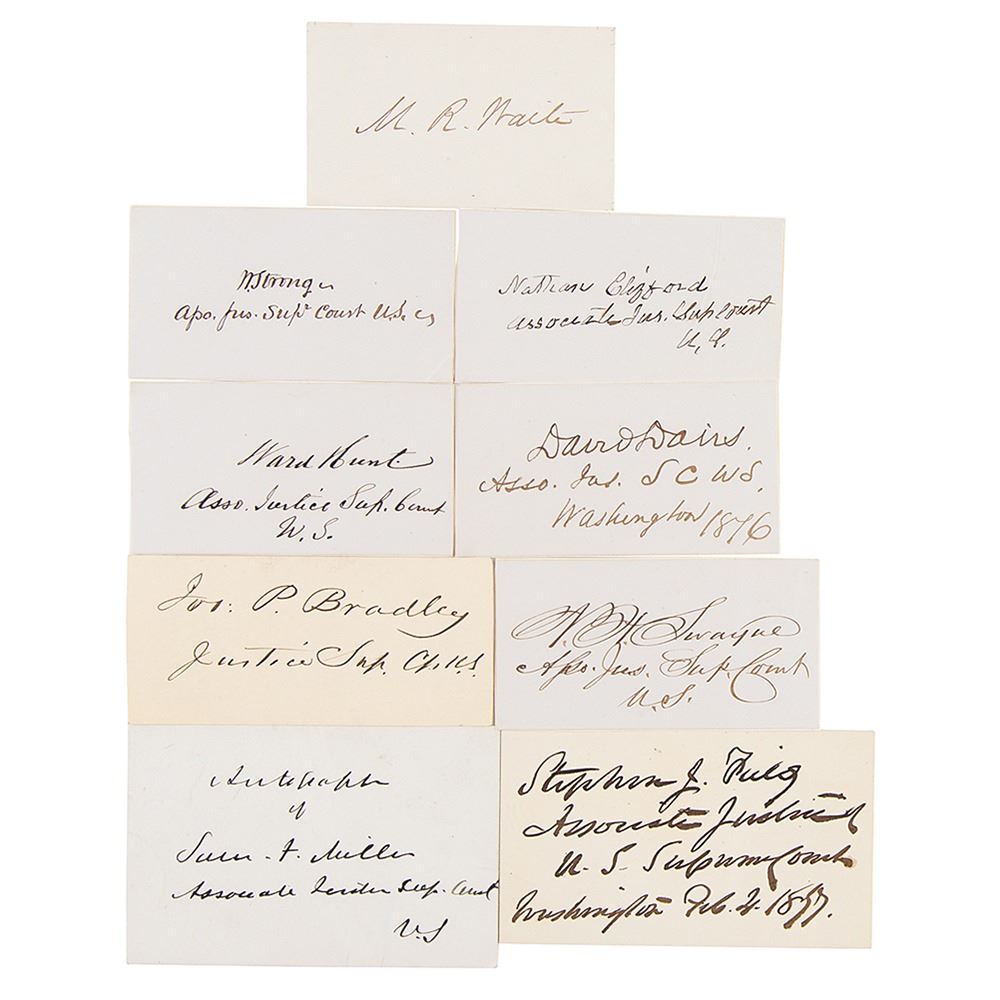 M. R. Waite
W. Strong
Asso. Jus. Supr Court U.S.
Nathan Clifford
Associate Jus. Sup Court
U. S.
Ward Hunt
Asso. Justice Sup. Court
U. S.
David Davis.
Asso. Jus. S C U S,
Washington 1876
Jos: P. Bradley
Justice Sup. Ct. U.S.
N. H. Swayne
Asso. Jus. Sup. Court
U. S.
Autograph
of
Sam. F. Miller
Associate Justice Sup. Court
U S
Stephen J. Field
Associate Justice
U. S. Supreme Court
Washington Feb. 2. 1877.